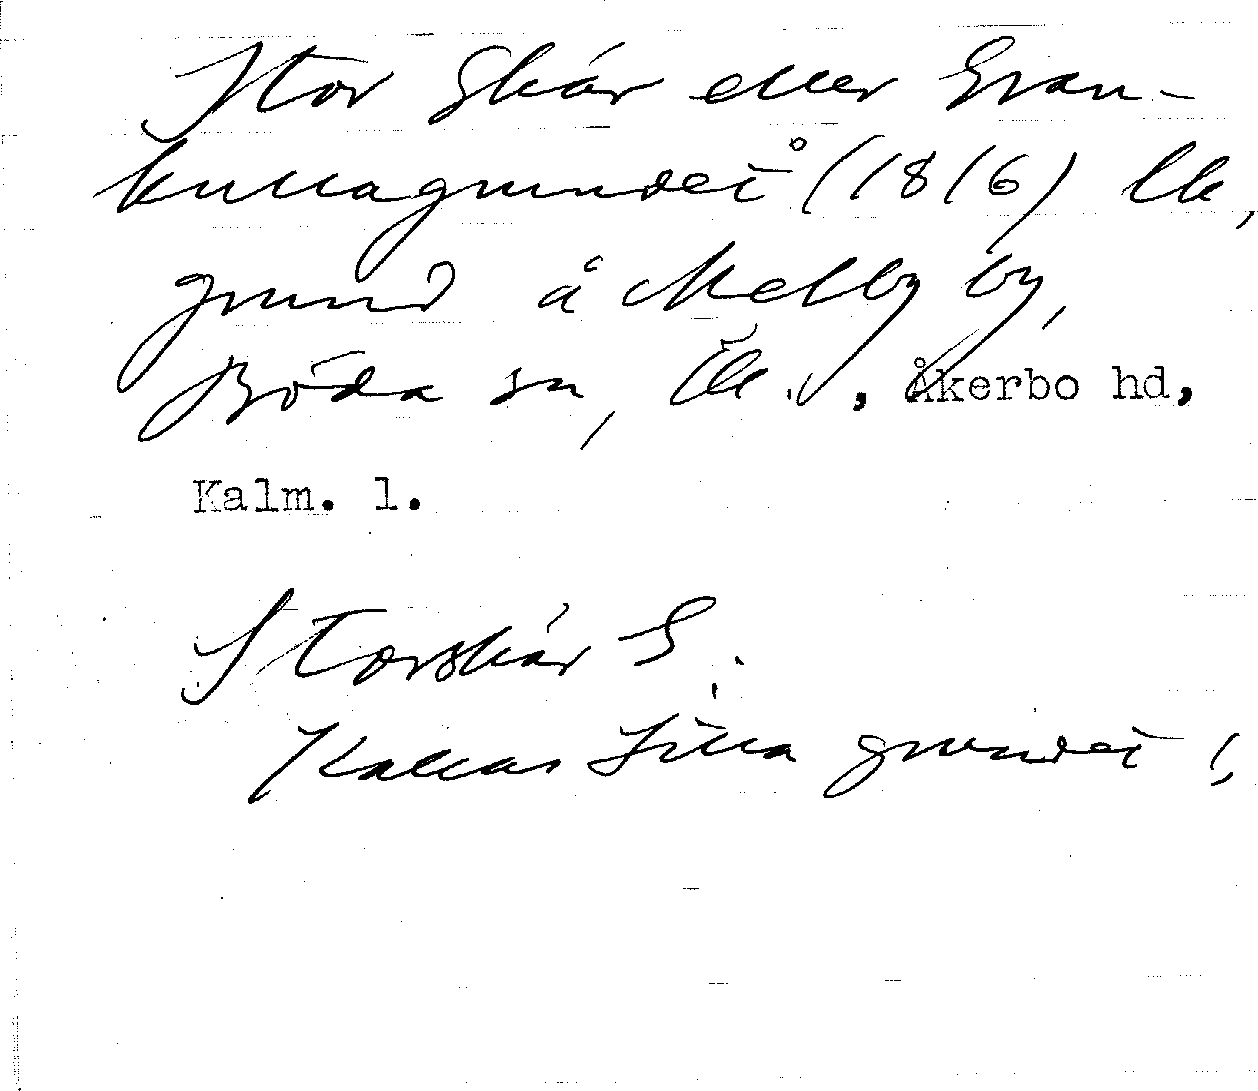 Stor Skär eller Gran-
kullagrundet (1816) lk,
grund å Mellby by,
Böda sn, Åkerbo hd,
Kalm. l.
Storskär S.
Kallas Lilla grundet!